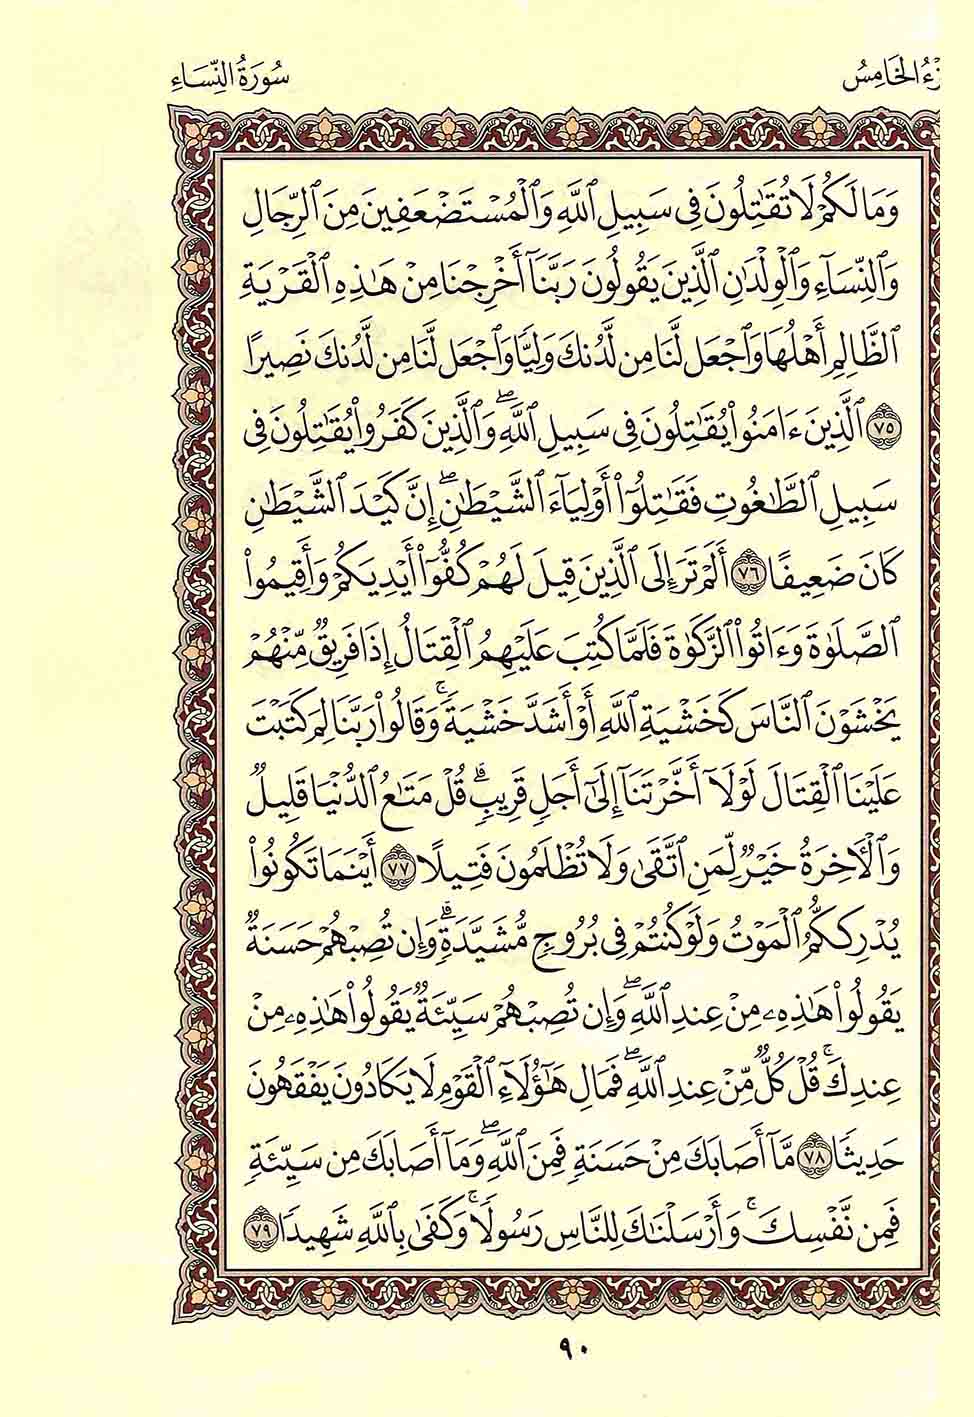 سُورَةُ النِّسَاءِ
زْءُ الخَامِسُ
وَمَا لَكُمْ لَا تُقَٰتِلُونَ فِي سَبِيلِ ٱللَّهِ وَٱلْمُسْتَضْعَفِينَ مِنَ ٱلرِّجَالِ
وَٱلنِّسَآءِ وَٱلْوِلْدَٰنِ ٱلَّذِينَ يَقُولُونَ رَبَّنَآ أَخْرِجْنَا مِنْ هَٰذِهِ ٱلْقَرْيَةِ
ٱلظَّالِمِ أَهْلُهَا وَٱجْعَل لَّنَا مِن لَّدُنكَ وَلِيًّا وَٱجْعَل لَّنَا مِن لَّدُنكَ نَصِيرًا
٧٥ ٱلَّذِينَ ءَامَنُوا۟ يُقَٰتِلُونَ فِي سَبِيلِ ٱللَّهِ ۖ وَٱلَّذِينَ كَفَرُوا۟ يُقَٰتِلُونَ فِي
سَبِيلِ ٱلطَّٰغُوتِ فَقَٰتِلُوٓا۟ أَوْلِيَآءَ ٱلشَّيْطَٰنِ ۖ إِنَّ كَيْدَ ٱلشَّيْطَٰنِ
كَانَ ضَعِيفًا ٧٦ أَلَمْ تَرَ إِلَى ٱلَّذِينَ قِيلَ لَهُمْ كُفُّوٓا۟ أَيْدِيَكُمْ وَأَقِيمُوا۟
ٱلصَّلَوٰةَ وَءَاتُوا۟ ٱلزَّكَوٰةَ فَلَمَّا كُتِبَ عَلَيْهِمُ ٱلْقِتَالُ إِذَا فَرِيقٌ مِّنْهُمْ
يَخْشَوْنَ ٱلنَّاسَ كَخَشْيَةِ ٱللَّهِ أَوْ أَشَدَّ خَشْيَةً ۚ وَقَالُوا۟ رَبَّنَا لِمَ كَتَبْتَ
عَلَيْنَا ٱلْقِتَالَ لَوْلَآ أَخَّرْتَنَآ إِلَىٰٓ أَجَلٍ قَرِيبٍ ۗ قُلْ مَتَٰعُ ٱلدُّنْيَا قَلِيلٌ
وَٱلْءَاخِرَةُ خَيْرٌ لِّمَنِ ٱتَّقَىٰ وَلَا تُظْلَمُونَ فَتِيلًا ٧٧ أَيْنَمَا تَكُونُوا۟
يُدْرِككُّمُ ٱلْمَوْتُ وَلَوْ كُنتُمْ فِي بُرُوجٍ مُّشَيَّدَةٍ ۗ وَإِن تُصِبْهُمْ حَسَنَةٌ
يَقُولُوا۟ هَٰذِهِۦ مِنْ عِندِ ٱللَّهِ ۖ وَإِن تُصِبْهُمْ سَيِّئَةٌ يَقُولُوا۟ هَٰذِهِۦ مِنْ
عِندِكَ ۚ قُلْ كُلٌّ مِّنْ عِندِ ٱللَّهِ ۖ فَمَالِ هَٰٓؤُلَآءِ ٱلْقَوْمِ لَا يَكَادُونَ يَفْقَهُونَ
حَدِيثًا ٧٨ مَّآ أَصَابَكَ مِنْ حَسَنَةٍ فَمِنَ ٱللَّهِ ۖ وَمَآ أَصَابَكَ مِن سَيِّئَةٍ
فَمِن نَّفْسِكَ ۚ وَأَرْسَلْنَٰكَ لِلنَّاسِ رَسُولًا ۚ وَكَفَىٰ بِٱللَّهِ شَهِيدًا ٧٩
٩٠